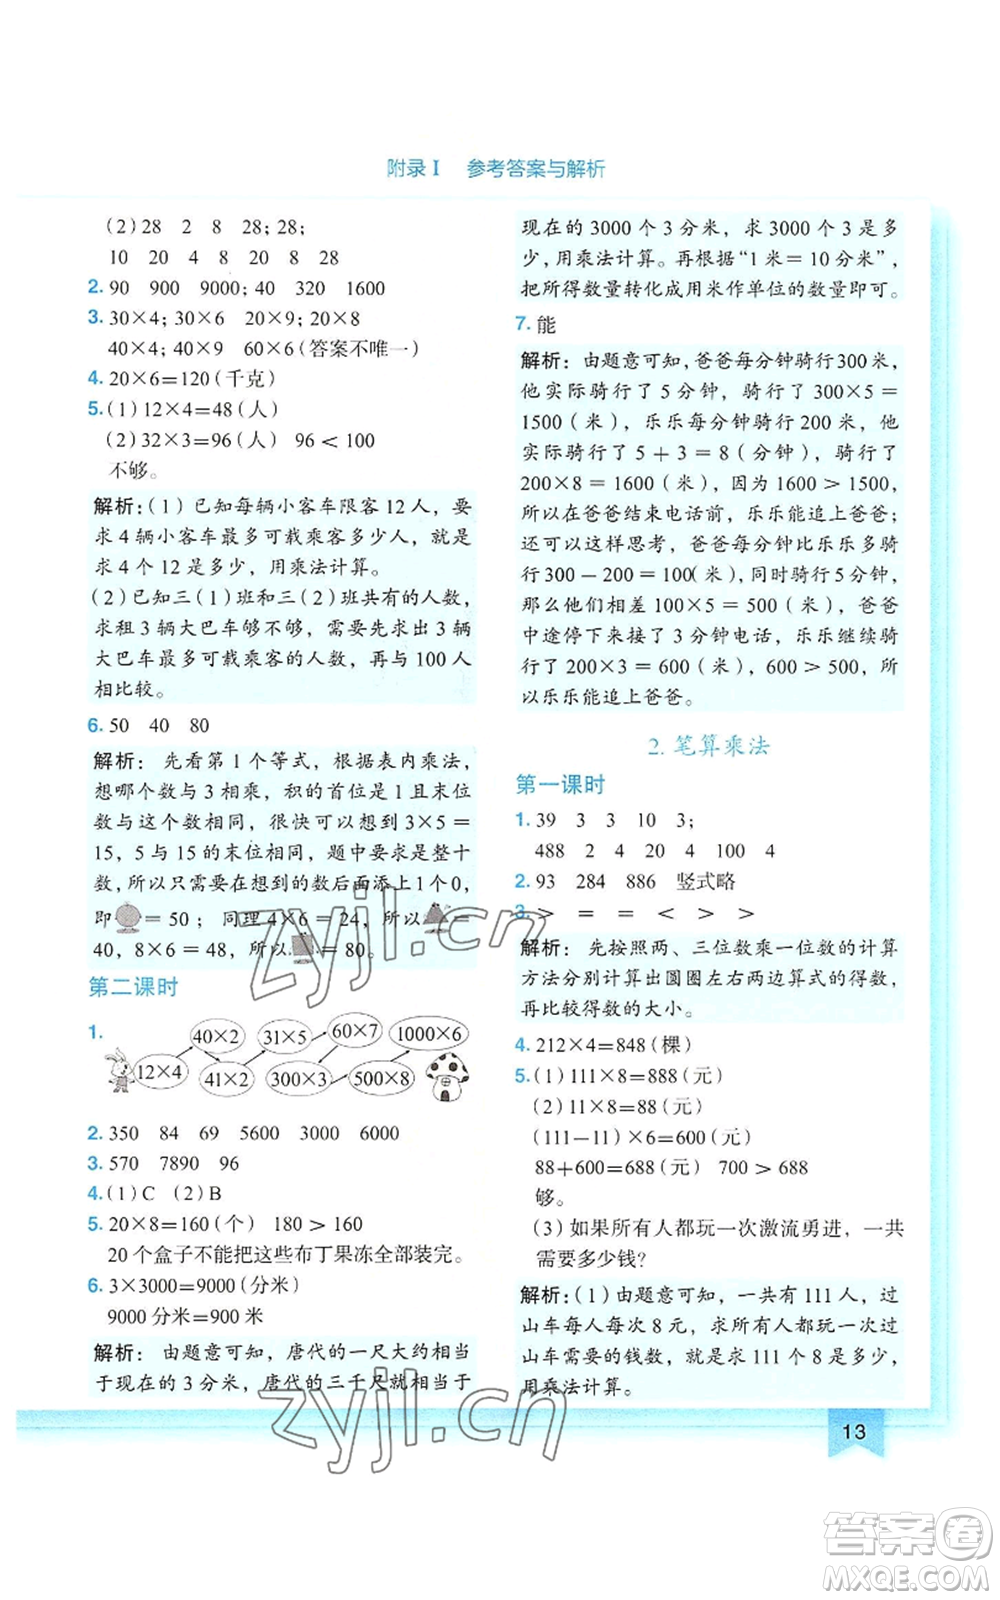 附录 I 参考答案与解析
(2)28 2 8 28;28;
10 20 4 8 20 28 28
2. 90 900 9000;40 320 1600
3. 30×4;30×6 20×9;20×8
40×4;40×9 60×6(答案不唯一)
4. 20×6=120(千克)
5. (1)12×4=48(人)
(2)32×3=96(人) 96<100
不够。
解析:(1)已知每辆小客车限客12人，要
求4辆小客车最多可载乘客多少人，就是
求4个12是多少，用乘法计算。
(2)已知三(1)班和三(2)班共有的人数，
求租3辆大巴车够不够，需要先求出3辆
大巴车最多可载乘客的人数，再与100人
相比较。
6. 50 40 80
解析：先看第1个等式，根据表内乘法，
想哪个数与3相乘，积的首位是1且末位
数与这个数相同，很快可以想到3×5=
15,5与15的末位相同，题中要求是整十
数，所以只需要在想到的数后面添上1个0,
即 =50；同理4×6=24,所以 =
40,8×6=48,所以 =80。
第二课时
1.
40×2 31×5 60×7 1000×6
12×4 41×2 300×3 500×8
2. 350 84 69 5600 3000 6000
3. 570 7890 96
4. (1)C (2)B
5. 20×8=160(个) 180>160
20个盒子不能把这些布丁果冻全部装完。
6. 3×3000=9000(分米)
9000分米=900米
解析：由题意可知，唐代的一尺大约相当
于现在的3分米，唐代的三千尺就相当于
现在的3000个3分米，求3000个3是多
少,用乘法计算。再根据“1米=10分米”,
把所得数量转化成用米作单位的数量即可。
7. 能
解析：由题意可知,爸爸每分钟骑行300米，
他实际骑行了5分钟，骑行了300×5=
1500(米)，乐乐每分钟骑行200米，他
实际骑行了5+3=8(分钟)，骑行了
200×8=1600(米)，因为1600>1500,
所以在爸爸结束电话前，乐乐能追上爸爸；
还可以这样思考，爸爸每分钟比乐乐多骑
行300-200=100(米),同时骑行5分钟,
那么他们相差100×5=500(米)，爸爸
中途停下来接了3分钟电话，乐乐继续骑
行了200×3=600(米)，600>500,所
以乐乐能追上爸爸。
2. 笔算乘法
第一课时
1. 39 3 3 10 3;
488 2 4 20 4 100 4
2. 93 284 886 竖式略
3. > = = < > >
解析：先按照两、三位数乘一位数的计算
方法分别计算出圆圈左右两边算式的得数，
再比较得数的大小。
4. 212×4=848(棵)
5. (1)111×8=888(元)
(2)11×8=88(元)
(111-11)×6=600(元)
88+600=688(元) 700>688
够。
(3)如果所有人都玩一次激流勇进，一共
需要多少钱?
解析:(1)由题意可知，一共有111人，过
山车每人每次8元，求所有人都玩一次过
山车需要的钱数，就是求111个8是多少，
用乘法计算。
13
zyjl.cn
zyjl.cn
答案卷
MXQE.COM